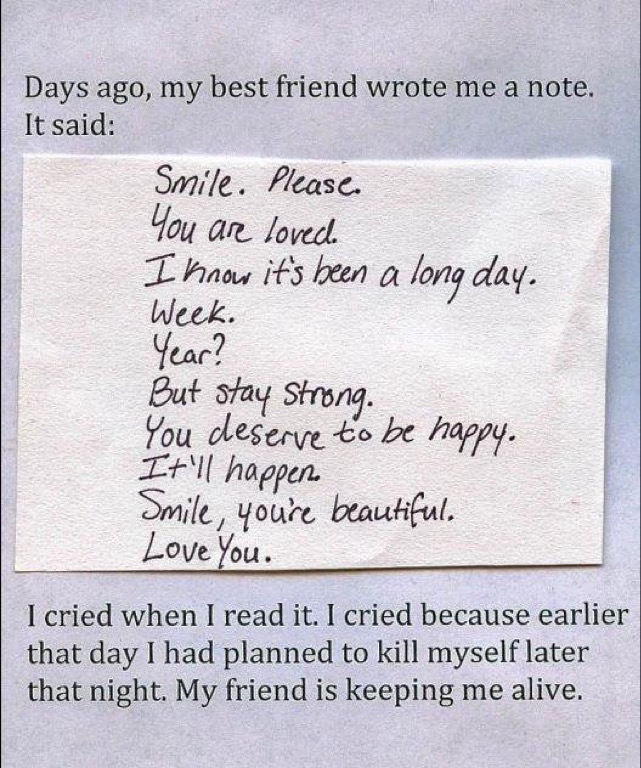 Days ago, my best friend wrote me a note.
It said:
Smile. Please.
You are loved.
I know it's been a long day.
Week.
Year?
But stay strong.
You deserve to be happy.
It'll happen.
Smile, you're beautiful.
Love You.
I cried when I read it. I cried because earlier
that day I had planned to kill myself later
that night. My friend is keeping me alive.